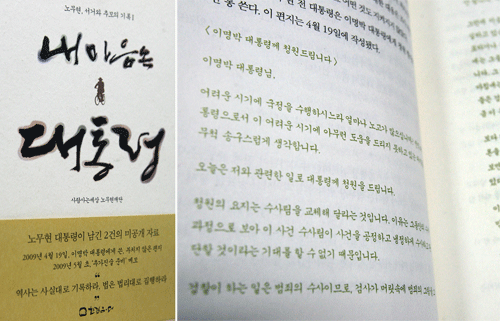 노무현, 서거와 추모의 기록 I
내 마음속
대통령
사람사는세상 노무현재단
노무현 대통령이 남긴 2건의 미공개 자료
2009년 4월 19일, 이명박 대통령에게 쓴, 부치지 않은 편지
2009년 5월 초, '추가진술 준비' 메모
역사는 사실대로 기록하라, 법은 법리대로 집행하라
전 대통령은 이명박 대통령에게
쓴다. 이 편지는 4월 19일에 작성됐다.
< 이명박 대통령께 청원드립니다 >
이명박 대통령님,
어려운 시기에 국정을 수행하시느라 얼마나 노고가
통령으로서 이 어려운 시기에 아무런 도움을 드리지 못하고
무척 송구스럽게 생각합니다.
오늘은 저와 관련한 일로 대통령께 청원을 드립니다.
청원의 요지는 수사팀을 교체해 달라는 것입니다. 이유는 그동안
과정으로 보아 이 수사팀이 사건을 공정하고 냉정하게
단할 것이라는 기대를 할 수 없기 때문입니다.
검찰이 하는 일은 범죄의 수사이므로, 검사가 머릿속에 범죄의 그림을